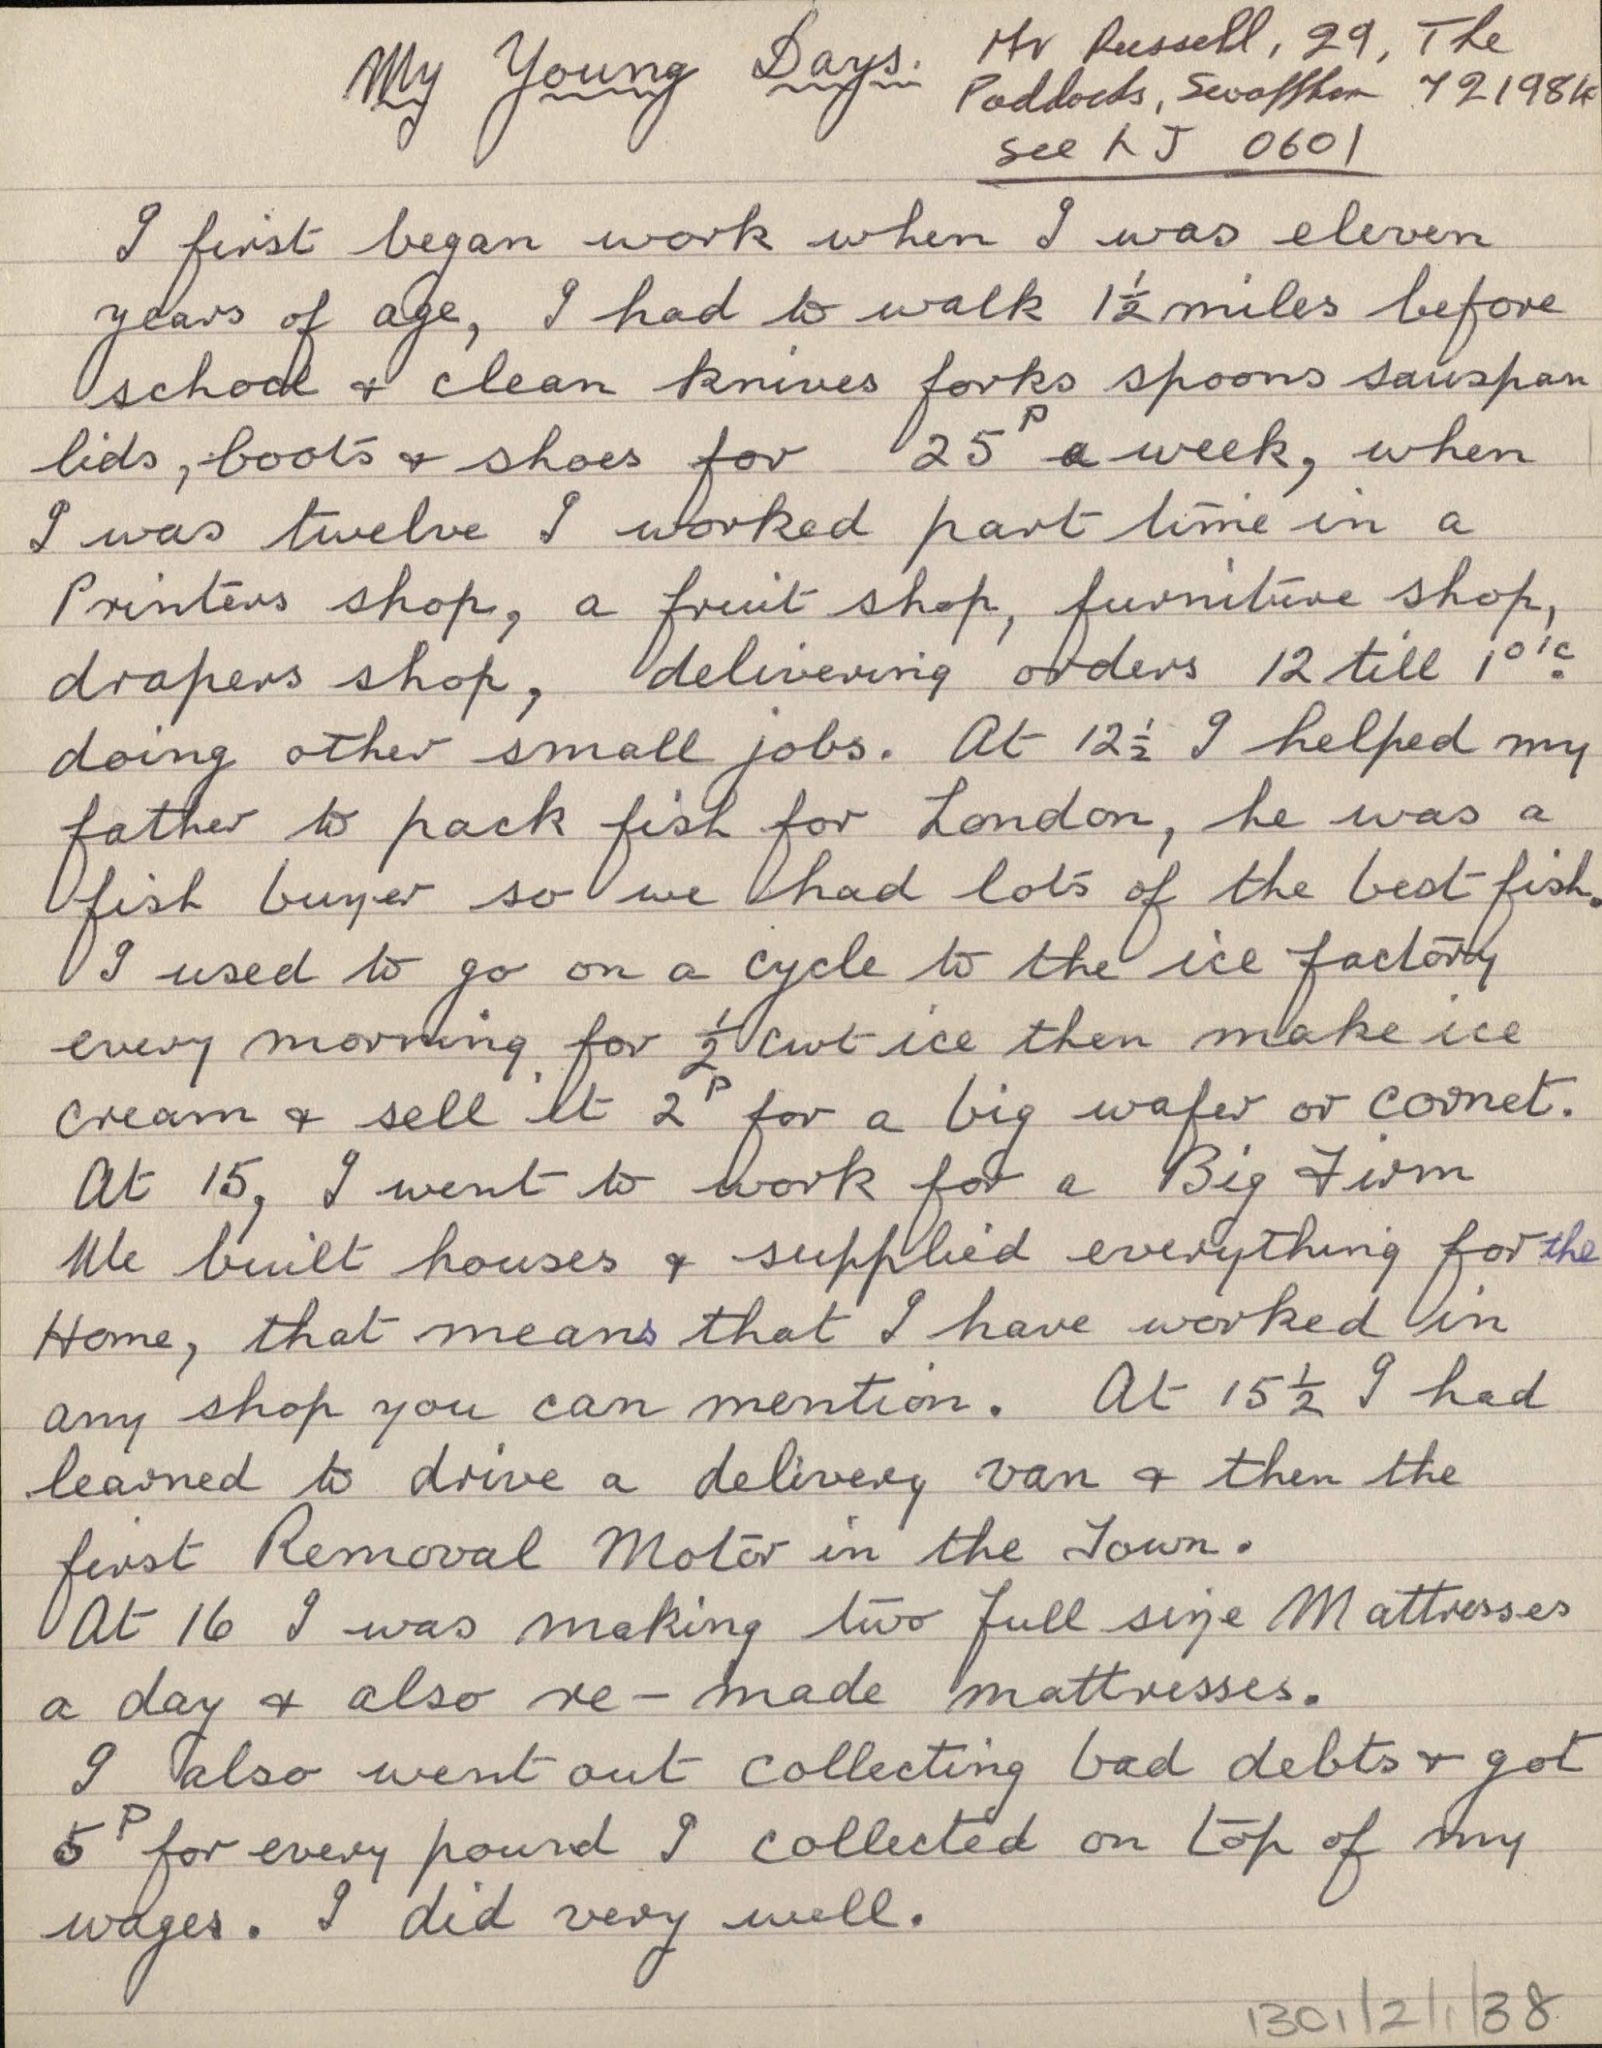 My Young Days.
Mr Russell, 29, The
Paddocks, Swaffham 721984
see LJ 0601
I first began work when I was eleven
years of age, I had to walk 1½ miles before
school & clean knives forks spoons sauspan
lids, boots & shoes for 25P a week, when
I was twelve I worked part time in a
Printers shop, a fruit shop, furniture shop,
drapers shop, delivering orders 12 till 1 o'c
doing other small jobs. At 12½ I helped my
father to pack fish for London, he was a
fish buyer so we had lots of the best fish.
I used to go on a cycle to the ice factory
every morning for ½ cwt ice then make ice
cream & sell it 2P for a big wafer or cornet.
At 15, I went to work for a Big Firm
We built houses & supplied everything for the
Home, that means that I have worked in
any shop you can mention. At 15½ I had
learned to drive a delivery van & then the
first Removal Motor in the Town.
At 16 I was making two full size Mattresses
a day & also re-made mattresses.
I also went out collecting bad debts & got
5P for every pound I collected on top of my
wages. I did very well.
1301/2/1/38